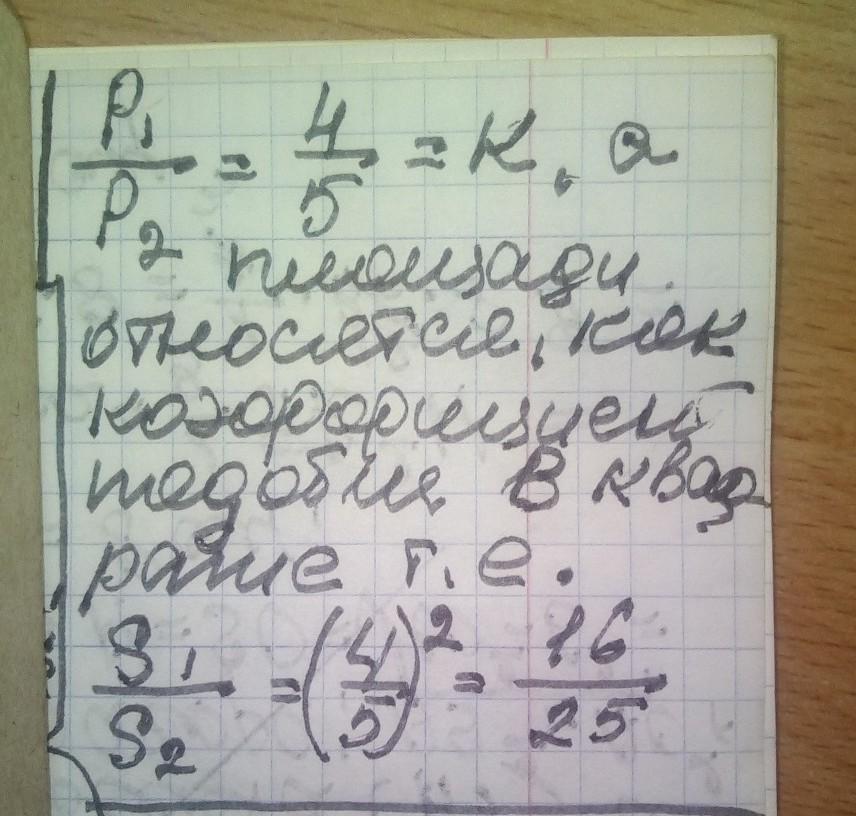 P₁/P₂ = 4/5 = K, а
площади
относятся, как
коэффициент
подобия в квад
рате т. е.
S₁/S₂ = (4/5)² = 16/25